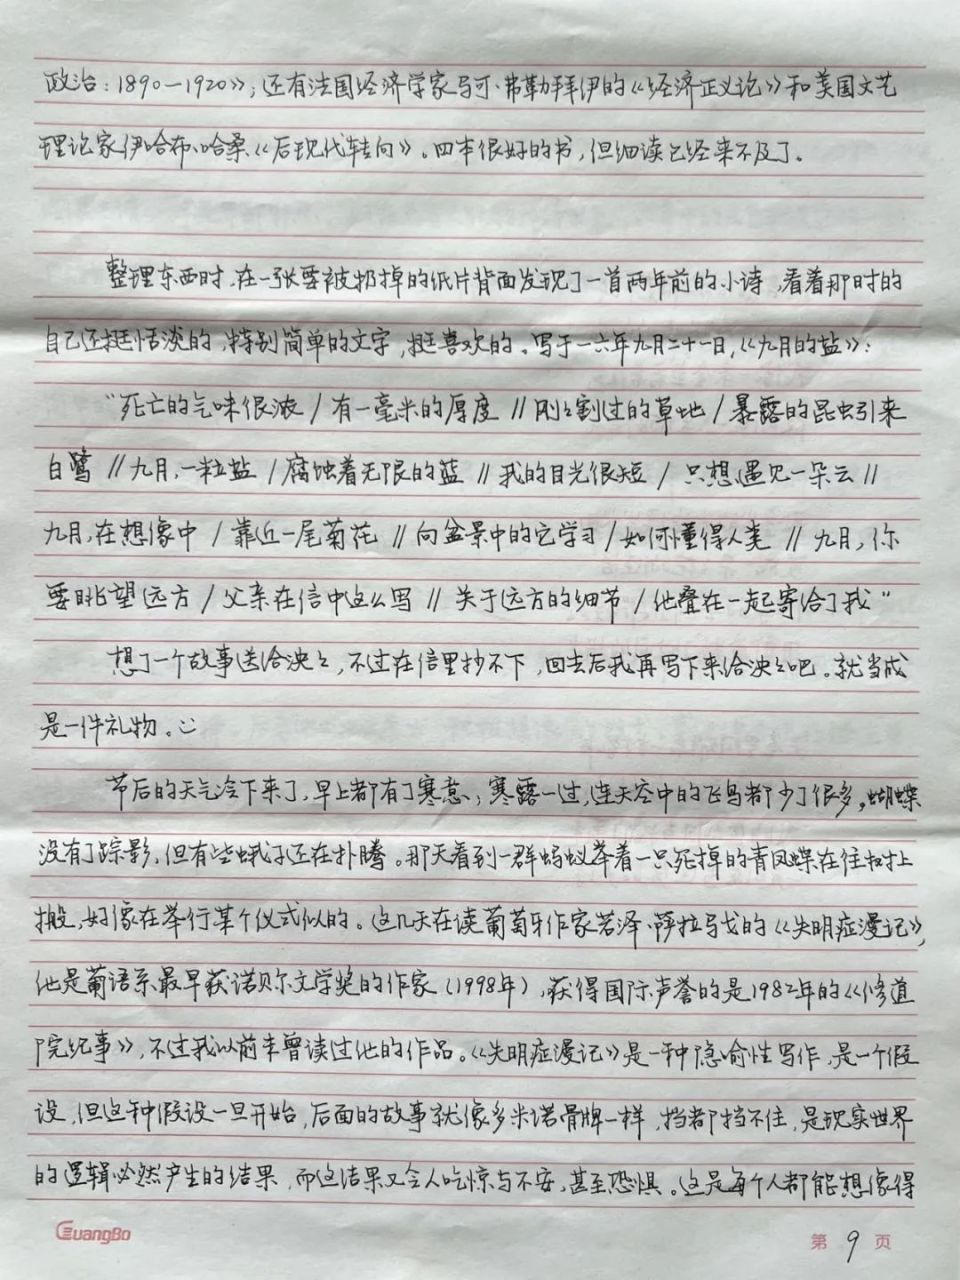 政治：1890—1920》；还有法国经济学家马可·弗勒拜伊的《经济正义论》和美国文艺
理论家伊哈布·哈桑《后现代转向》。四本很好的书，但细读已经来不及了。
整理东西时，在一张要被扔掉的纸片背面发现了一首两年前的小诗，看着那时的
自己还挺恬淡的，特别简单的文字，挺喜欢的。写于一六年九月二十一日，《九月的盐》：
“死亡的气味很浓 / 有一毫米的厚度 // 刚刚割过的草地 / 暴露的昆虫引来
白鹭 // 九月，一粒盐 / 腐蚀着无限的蓝 // 我的目光很短 / 只想遇见一朵云 //
九月，在想像中 / 靠近一尾菊花 // 向盆景中的它学习 / 如何懂得人类 // 九月，你
要眺望远方 / 父亲在信中这么写 // 关于远方的细节 / 他叠在一起寄给了我”
想了一个故事送给泱々，不过在信里抄不下，回去后我再写下来给泱々吧。就当成
是一件礼物。
节后的天气冷下来了，早上都有了寒意；寒露一过，连天空中的飞鸟都少了很多。蝴蝶
没有了踪影，但有些蛾子还在扑腾。那天看到一群蚂蚁举着一只死掉的青凤蝶在往树上
搬，好像在举行某个仪式似的。这几天在读葡萄牙作家若泽·萨拉马戈的《失明症漫记》，
他是葡语系最早获诺贝尔文学奖的作家（1998年），获得国际声誉的是1982年的《修道
院纪事》，不过我以前未曾读过他的作品。《失明症漫记》是一种隐喻性写作，是一个假
设，但这种假设一旦开始，后面的故事就像多米诺骨牌一样，挡都挡不住，是现实世界
的逻辑必然产生的结果，而这结果又令人吃惊与不安，甚至恐惧。这是每个人都能想像得
GuangBo
第 9 页